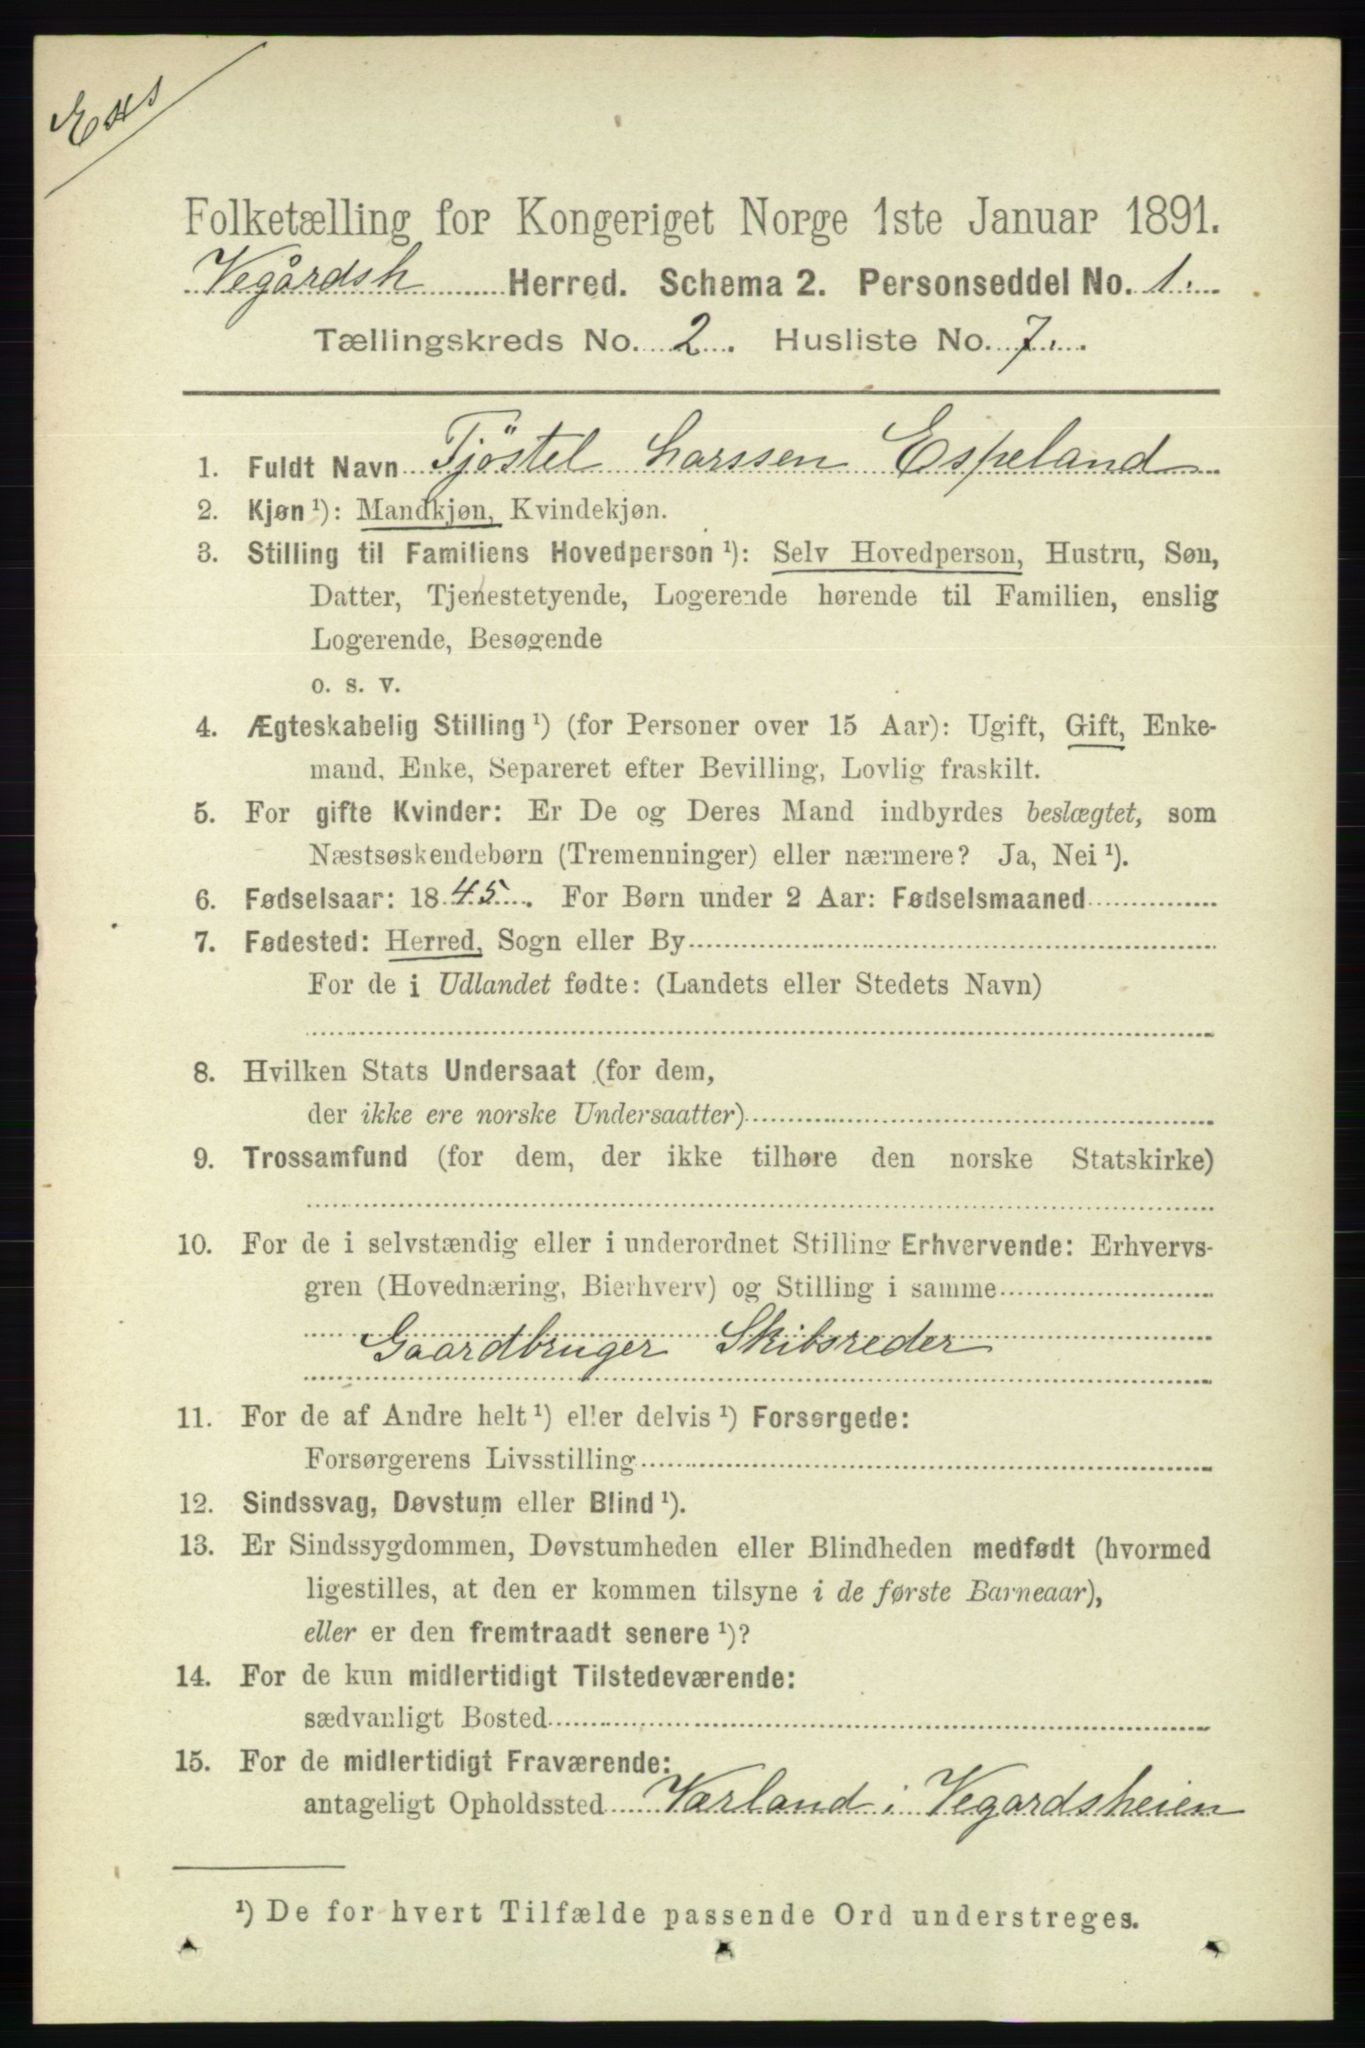 Folketælling for Kongeriget Norge 1ste Januar 1891.
Vegårdsh Herred. Schema 2. Personseddel No. 1.
Tællingskreds No. 2. Husliste No. 7.
1. Fuldt Navn Tjöstel Larssen Espeland
2. Kjøn ¹): Mandkjøn, Kvindekjøn.
3. Stilling til Familiens Hovedperson ¹): Selv Hovedperson, Hustru, Søn,
Datter, Tjenestetyende, Logerende hørende til Familien, enslig
Logerende, Besøgende
o. s. v.
4. Ægteskabelig Stilling ¹) (for Personer over 15 Aar): Ugift, Gift, Enke-
mand, Enke, Separeret efter Bevilling, Lovlig fraskilt.
5. For gifte Kvinder: Er De og Deres Mand indbyrdes beslægtet, som
Næstsøskendebørn (Tremenninger) eller nærmere? Ja, Nei ¹).
6. Fødselsaar: 1845. For Børn under 2 Aar: Fødselsmaaned
7. Fødested: Herred, Sogn eller By
For de i Udlandet fødte: (Landets eller Stedets Navn)
8. Hvilken Stats Undersaat (for dem,
der ikke ere norske Undersaatter)
9. Trossamfund (for dem, der ikke tilhøre den norske Statskirke)
10. For de i selvstændig eller i underordnet Stilling Erhvervende: Erhvervs-
gren (Hovednæring, Bierhverv) og Stilling i samme
Gaardbruger Skibsreder
11. For de af Andre helt ¹) eller delvis ¹) Forsørgede:
Forsørgerens Livsstilling
12. Sindssvag, Døvstum eller Blind ¹).
13. Er Sindssygdommen, Døvstumheden eller Blindheden medfødt (hvormed
ligestilles, at den er kommen tilsyne i de første Barneaar),
eller er den fremtraadt senere ¹)?
14. For de kun midlertidigt Tilstedeværende:
sædvanligt Bosted
15. For de midlertidigt Fraværende:
antageligt Opholdssted Varland i Vegardsheien
¹) De for hvert Tilfælde passende Ord understreges.